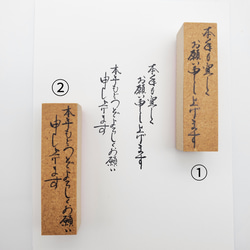 本年も宜しく
お願い申し上げます
①
本年も宜しく
お願い申し上げます
本年もどうぞよろしくお願い
申し上げます
②
本年もどうぞよろしくお願い
申し上げます